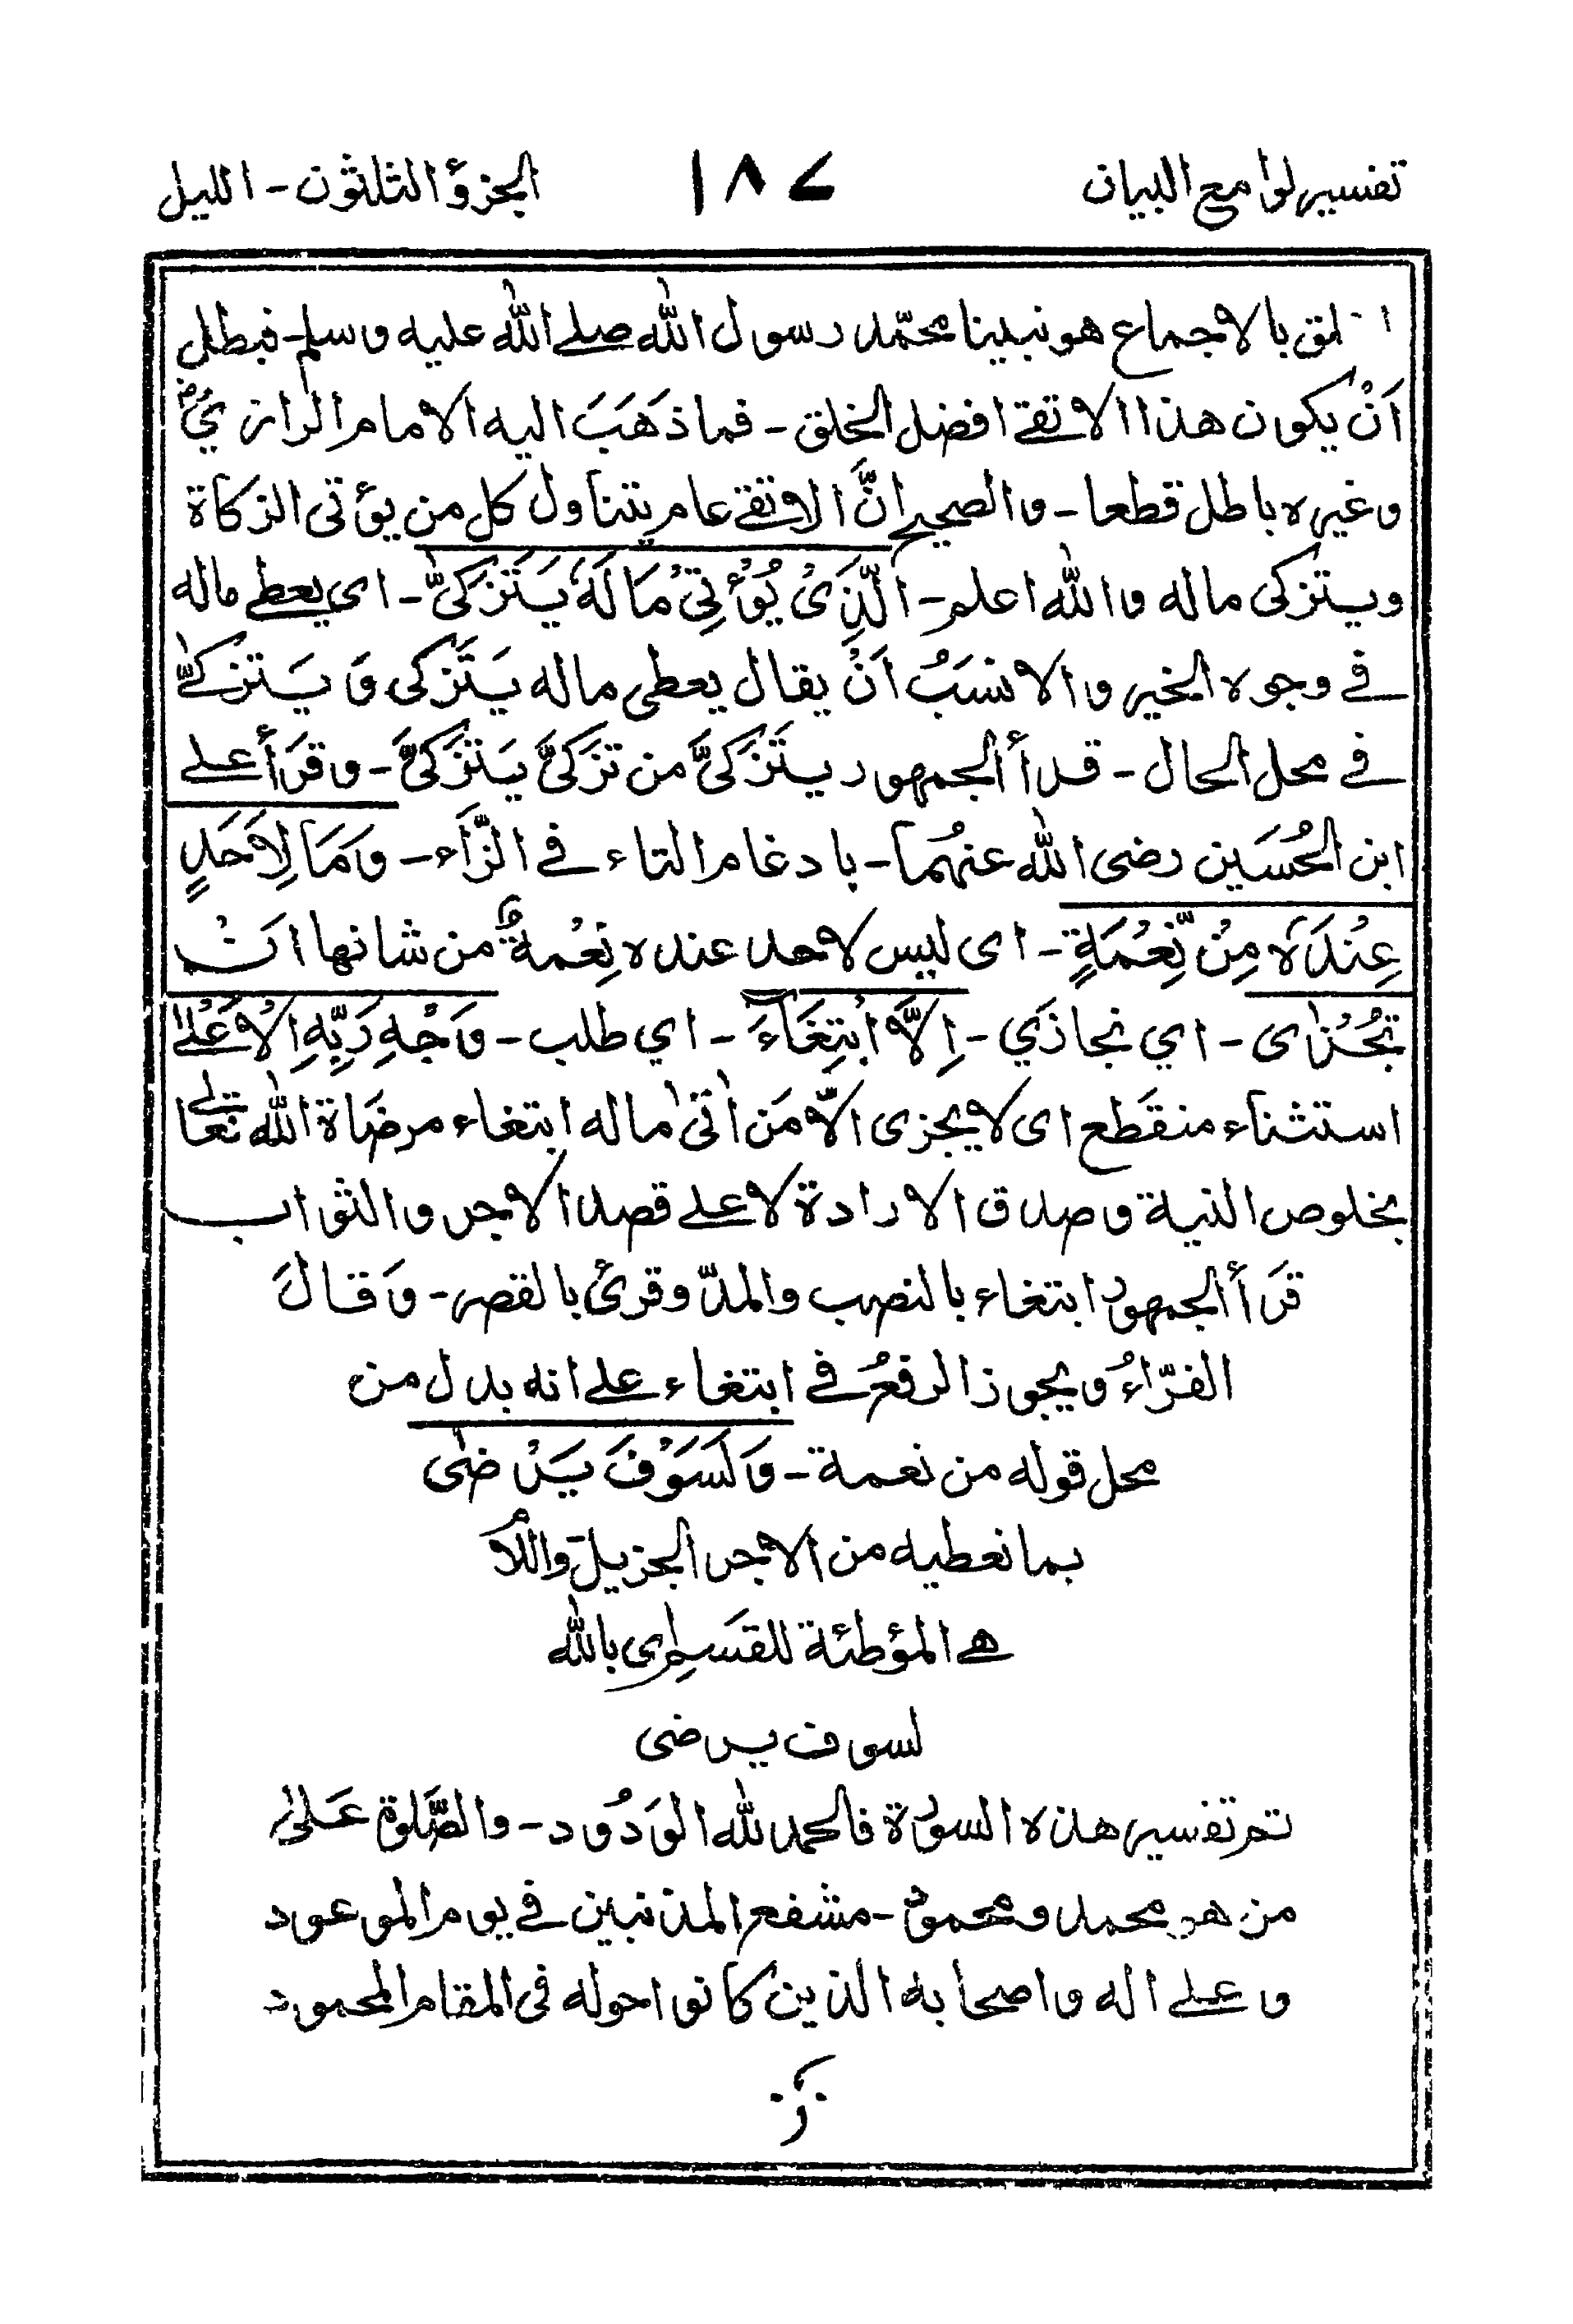 تفسير لوامع البيان ١٨٧ الجزؤ الثلثون - الليل
بالاجماع هو نبينا محمّد رسول الله صلے الله عليه وسلم - فبطل
اَنْ يكون هذا الاتقے افضل الخلق - فما ذهَبَ اليه الامام الرازيؒ
وغيره باطل قطعا - والصحيح انَّ الاتقے عام يتناول كل من يؤتى الزكاة
ويتزكى ماله والله اعلم - الَّذِىْ يُؤْتِىْ مَالَهٗ يَتَزَكىّٰ - اى يعطے ماله
فے وجوه الخير والانسَبُ اَنْ يقال يعطى ماله يَتَزكى وَ يَتزكےّٰ
فے محل الحال - قرأ الجمهور يتَزَكىَّ من تزَكىَّ يَتَزَكىَّ - وقرَأ علے
ابن الحُسَين رضى الله عنهُما - بادغام التاء فے الزَّاء - وَمَا لِاَحَدٍ
عِنْدَهٗ مِنْ نِّعْمَةٍ - اى ليس لاحد عنده نِعْمةٌ من شانها ان
تُجْزٰى - اي نجازي - اِلَّا ابْتِغَاءَ - اي طلب - وَجْهِ رَبِّهِ الْاَعْلےٰ
استثناء منقَطع اى لا يجزى الّا مَن اٰتىٰ ماله ابتغاء مرضَاة الله تعالے
بخلوص النية وصدق الارادة لا علے قصد الاجر والثواب
قرَأ الجمهور ابتغاء بالنصب والمدّ وقرئ بالقصر - وَقالَ
الفرّاءُ ويجوز الرفعُ فے ابتغاء علے انه بدل من
محل قوله من نعمة - وَلَسَوْفَ يَرْضٰى
بما نعطيه من الاجر الجزيل واللّامُ
هے المؤطئة للقَسَم اى بالله
لسوف يرضى
تم تفسير هذه السورة فالحمد لله الوَدُود - والصَّلوة عَلىٰ
من هو محمد ومحمود - مشفع المذنبين فے يوم الموعود
وعلے اله واصحابه الذين كانوا حوله فى المقام المحمود